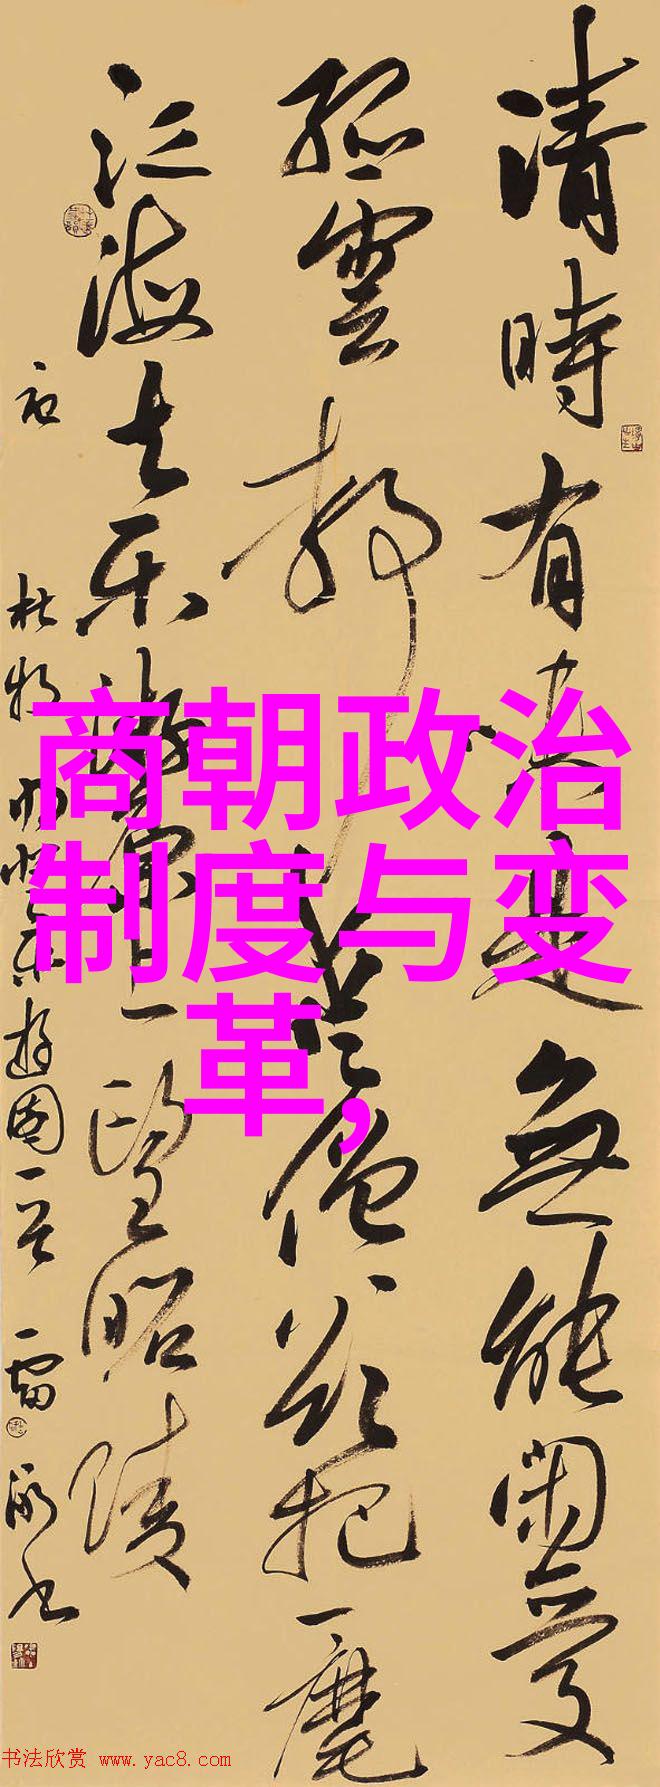 清時有味是無能閑愛
孤雲静愛僧欲把一麾
江海去乐游原上望昭陵
杜牧
商朝政治
制度与变
革,
书法欣赏 www.yac8.com